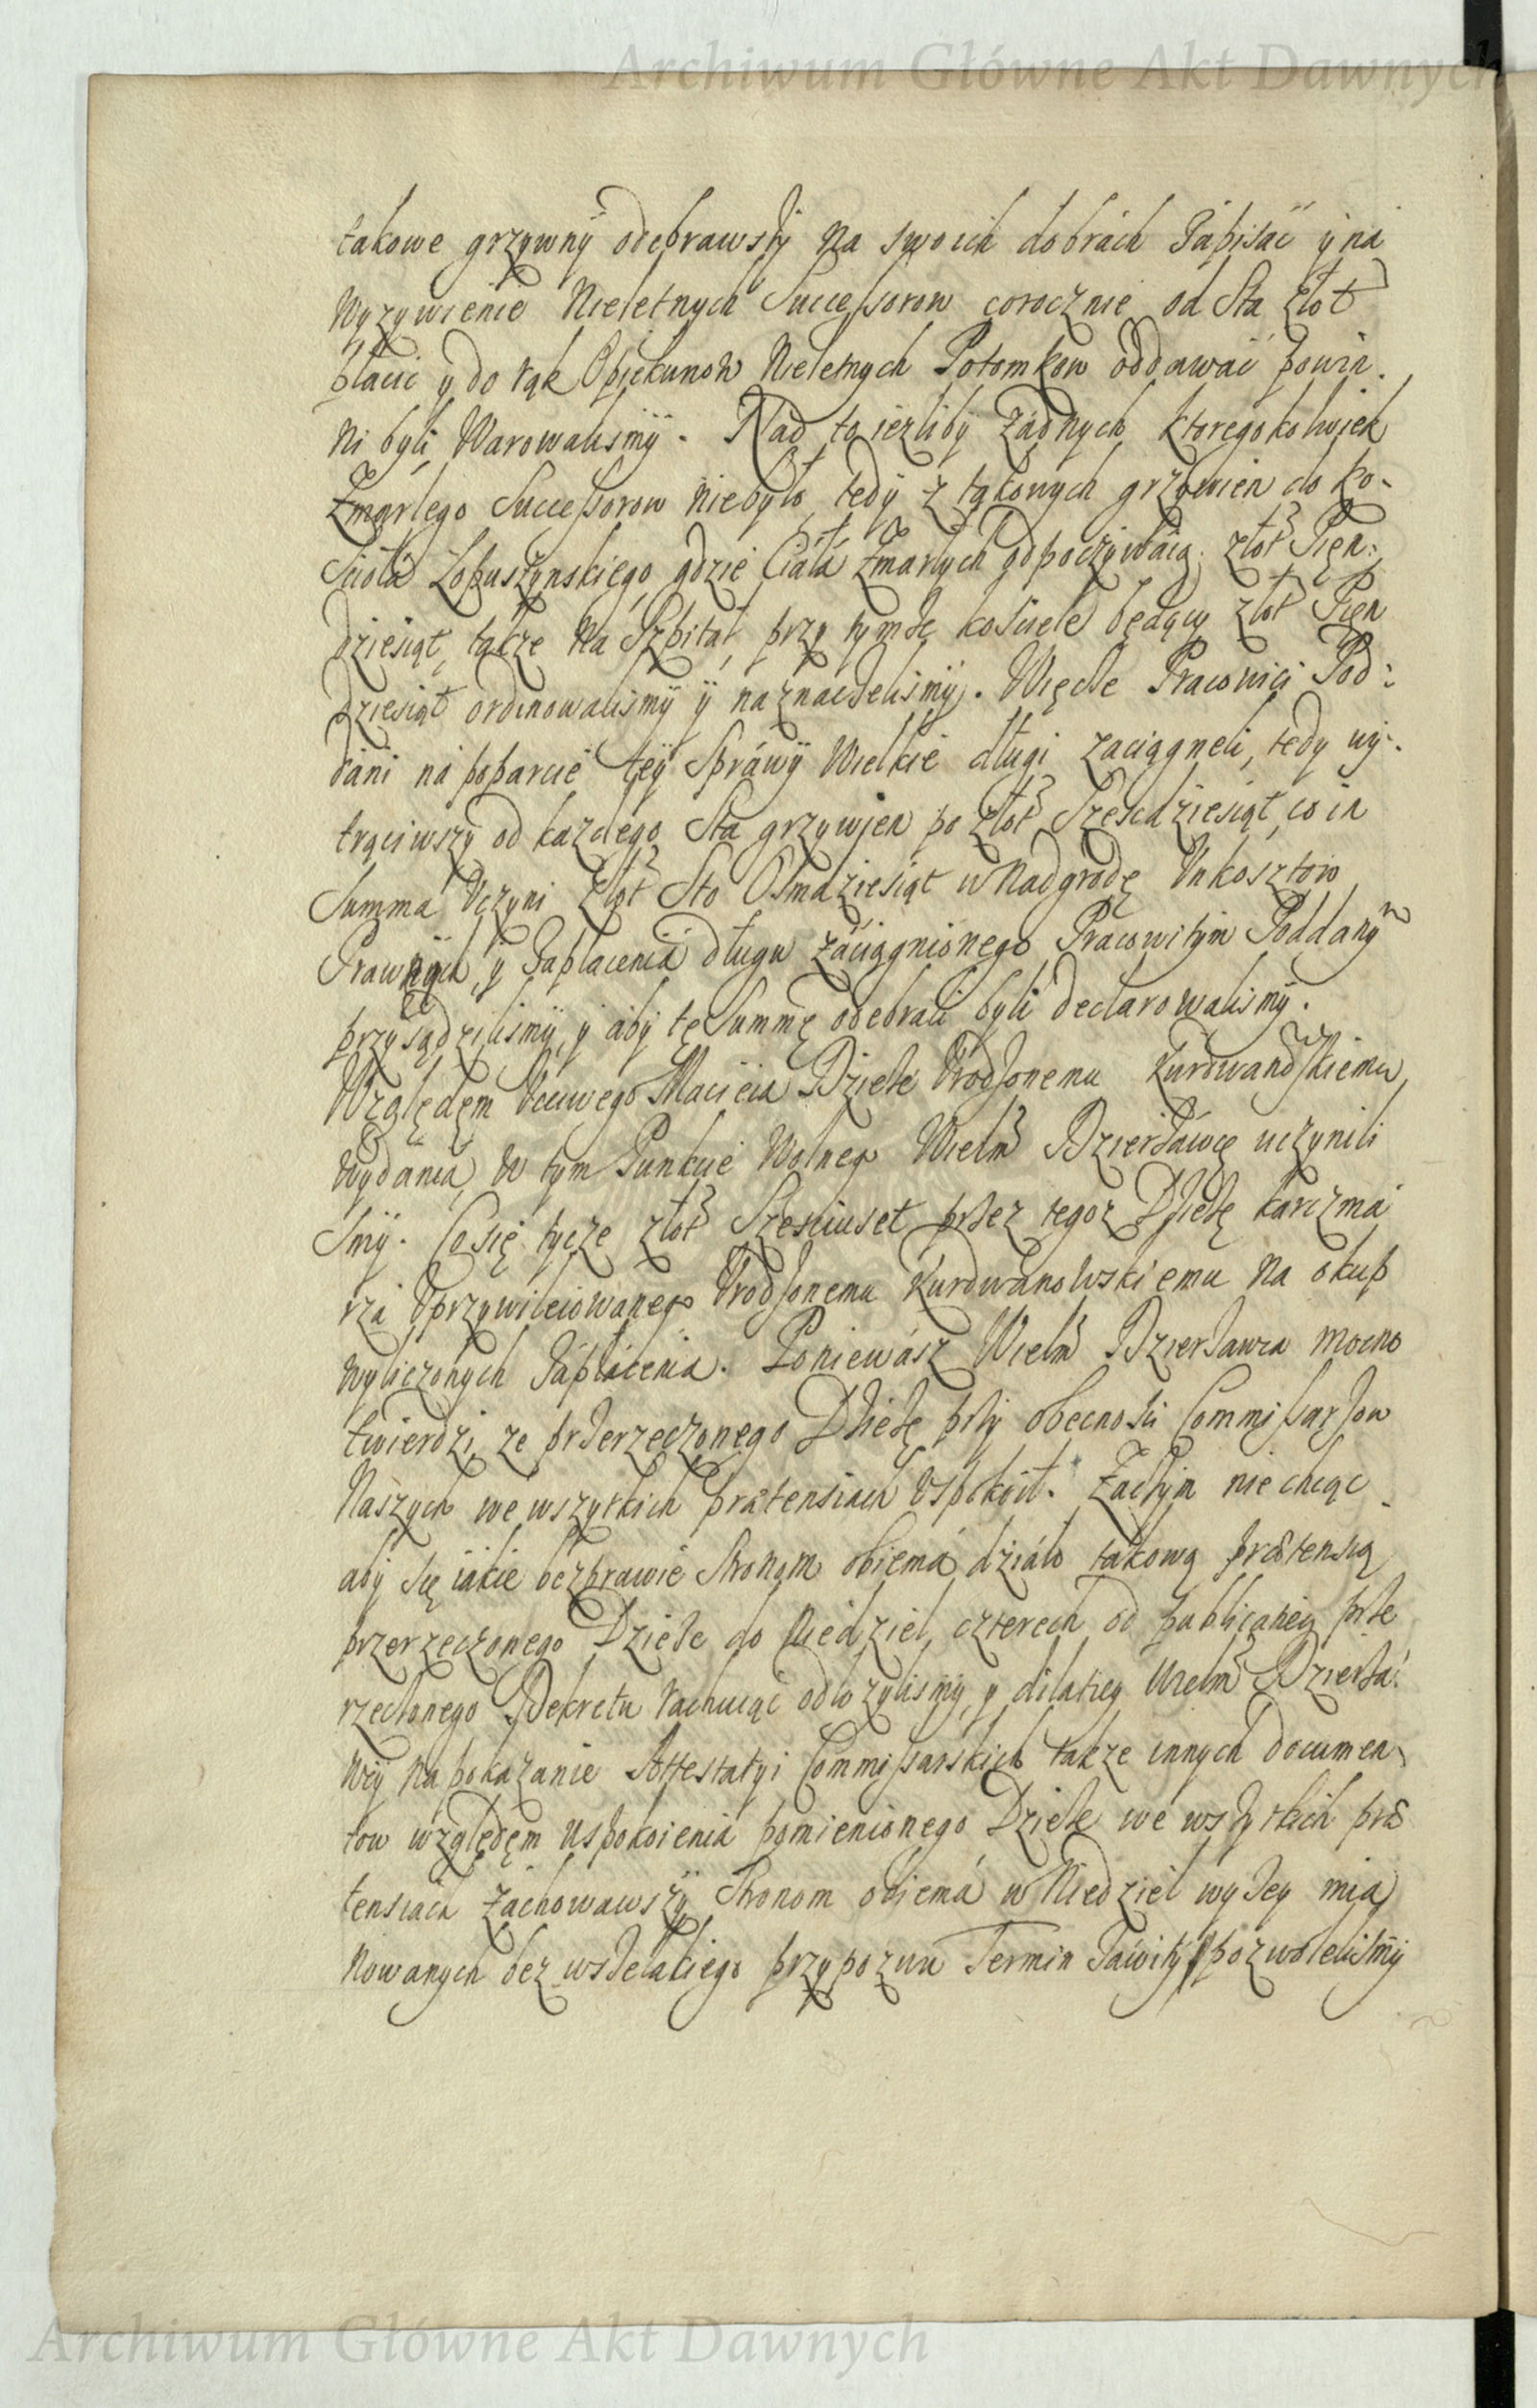 Archiwum Główne Akt Dawnych
takowe grzywny odebrawszy na swoich dobrach zapisać y na
wyzywienie Nieletnych Successorow corocznie od Sta złot
płacic y do rąk Opiekunow Nieletnych Potomkow oddawać powin.
ni byli Warowalismy. Nad to iezliby żadnych ktoregokolwiek
Zmarłego Successorow niebyło, tedy z takowych grzywien do Ko-
scioła Łopuszynskiego, gdzie Ciała Zmarłych odpoczywaią, złot Pięn:
dziesiąt, takze na Szpital przy tymze kosciele będący złot Pięn
dziesiąt ordinowalismy y naznaczelismy. Więcze Pracowici Pod:
dani na poparcie tey Sprawy Wielkie długi zaciągneli, tedy wy-
trąciwszy od kazdego Sta grzywien po złot Szescdziesiąt, co in
Summa Uczyni złot Sto Osmdziesiąt w Nadgrodę Unkosztow
Prawnych, y Zapłacenia długu zaciągnionego Pracowitym Poddanym
przysądzilismy, y aby tę Summę odebrali byli declarowalismy.
Względem Uczciwego Macieia Dzieże Urodzonemu Kurdwanowskiemu
wydania, w tym Punkcie Wolnego Wielm Dzierżawcę uczynili
smy. Co się tycze złot Szesciuset przez tegoz Dzieżę karczma
rza Uprzywileiowanego Urodzonemu Kurdwanowskiemu na okup
wyliczonych Zapłacenia. Poniewasz Wielm Dzierżawca mocno
twierdzi, ze przerzeczonego Dzieżę przy obecnosci Commissarzow
Naszych we wszytkich prætensiach Uspokoił. Zaczym nie chcąc
aby się iakie bezprawie Stronom obiema działo takową prætensią
przerzeczonego Dzieże do Niedziel czterech od publicatiey prze
rzeczonego Dekretu rachuiąc odłozylismy, y dilatiey Wielm Dzierża:
wcy na pokazanie Attestatyi Commissarskich takze innych Documen
tow względem uspokoienia pomienionego Dzieże we wszytkich præ
tensiach zachowawszy Stronom obiema w Niedziel wyżey mia
nowanych bez wszelakiego przypozwu Termin Zawity pozwolelismy
Archiwum Główne Akt Dawnych